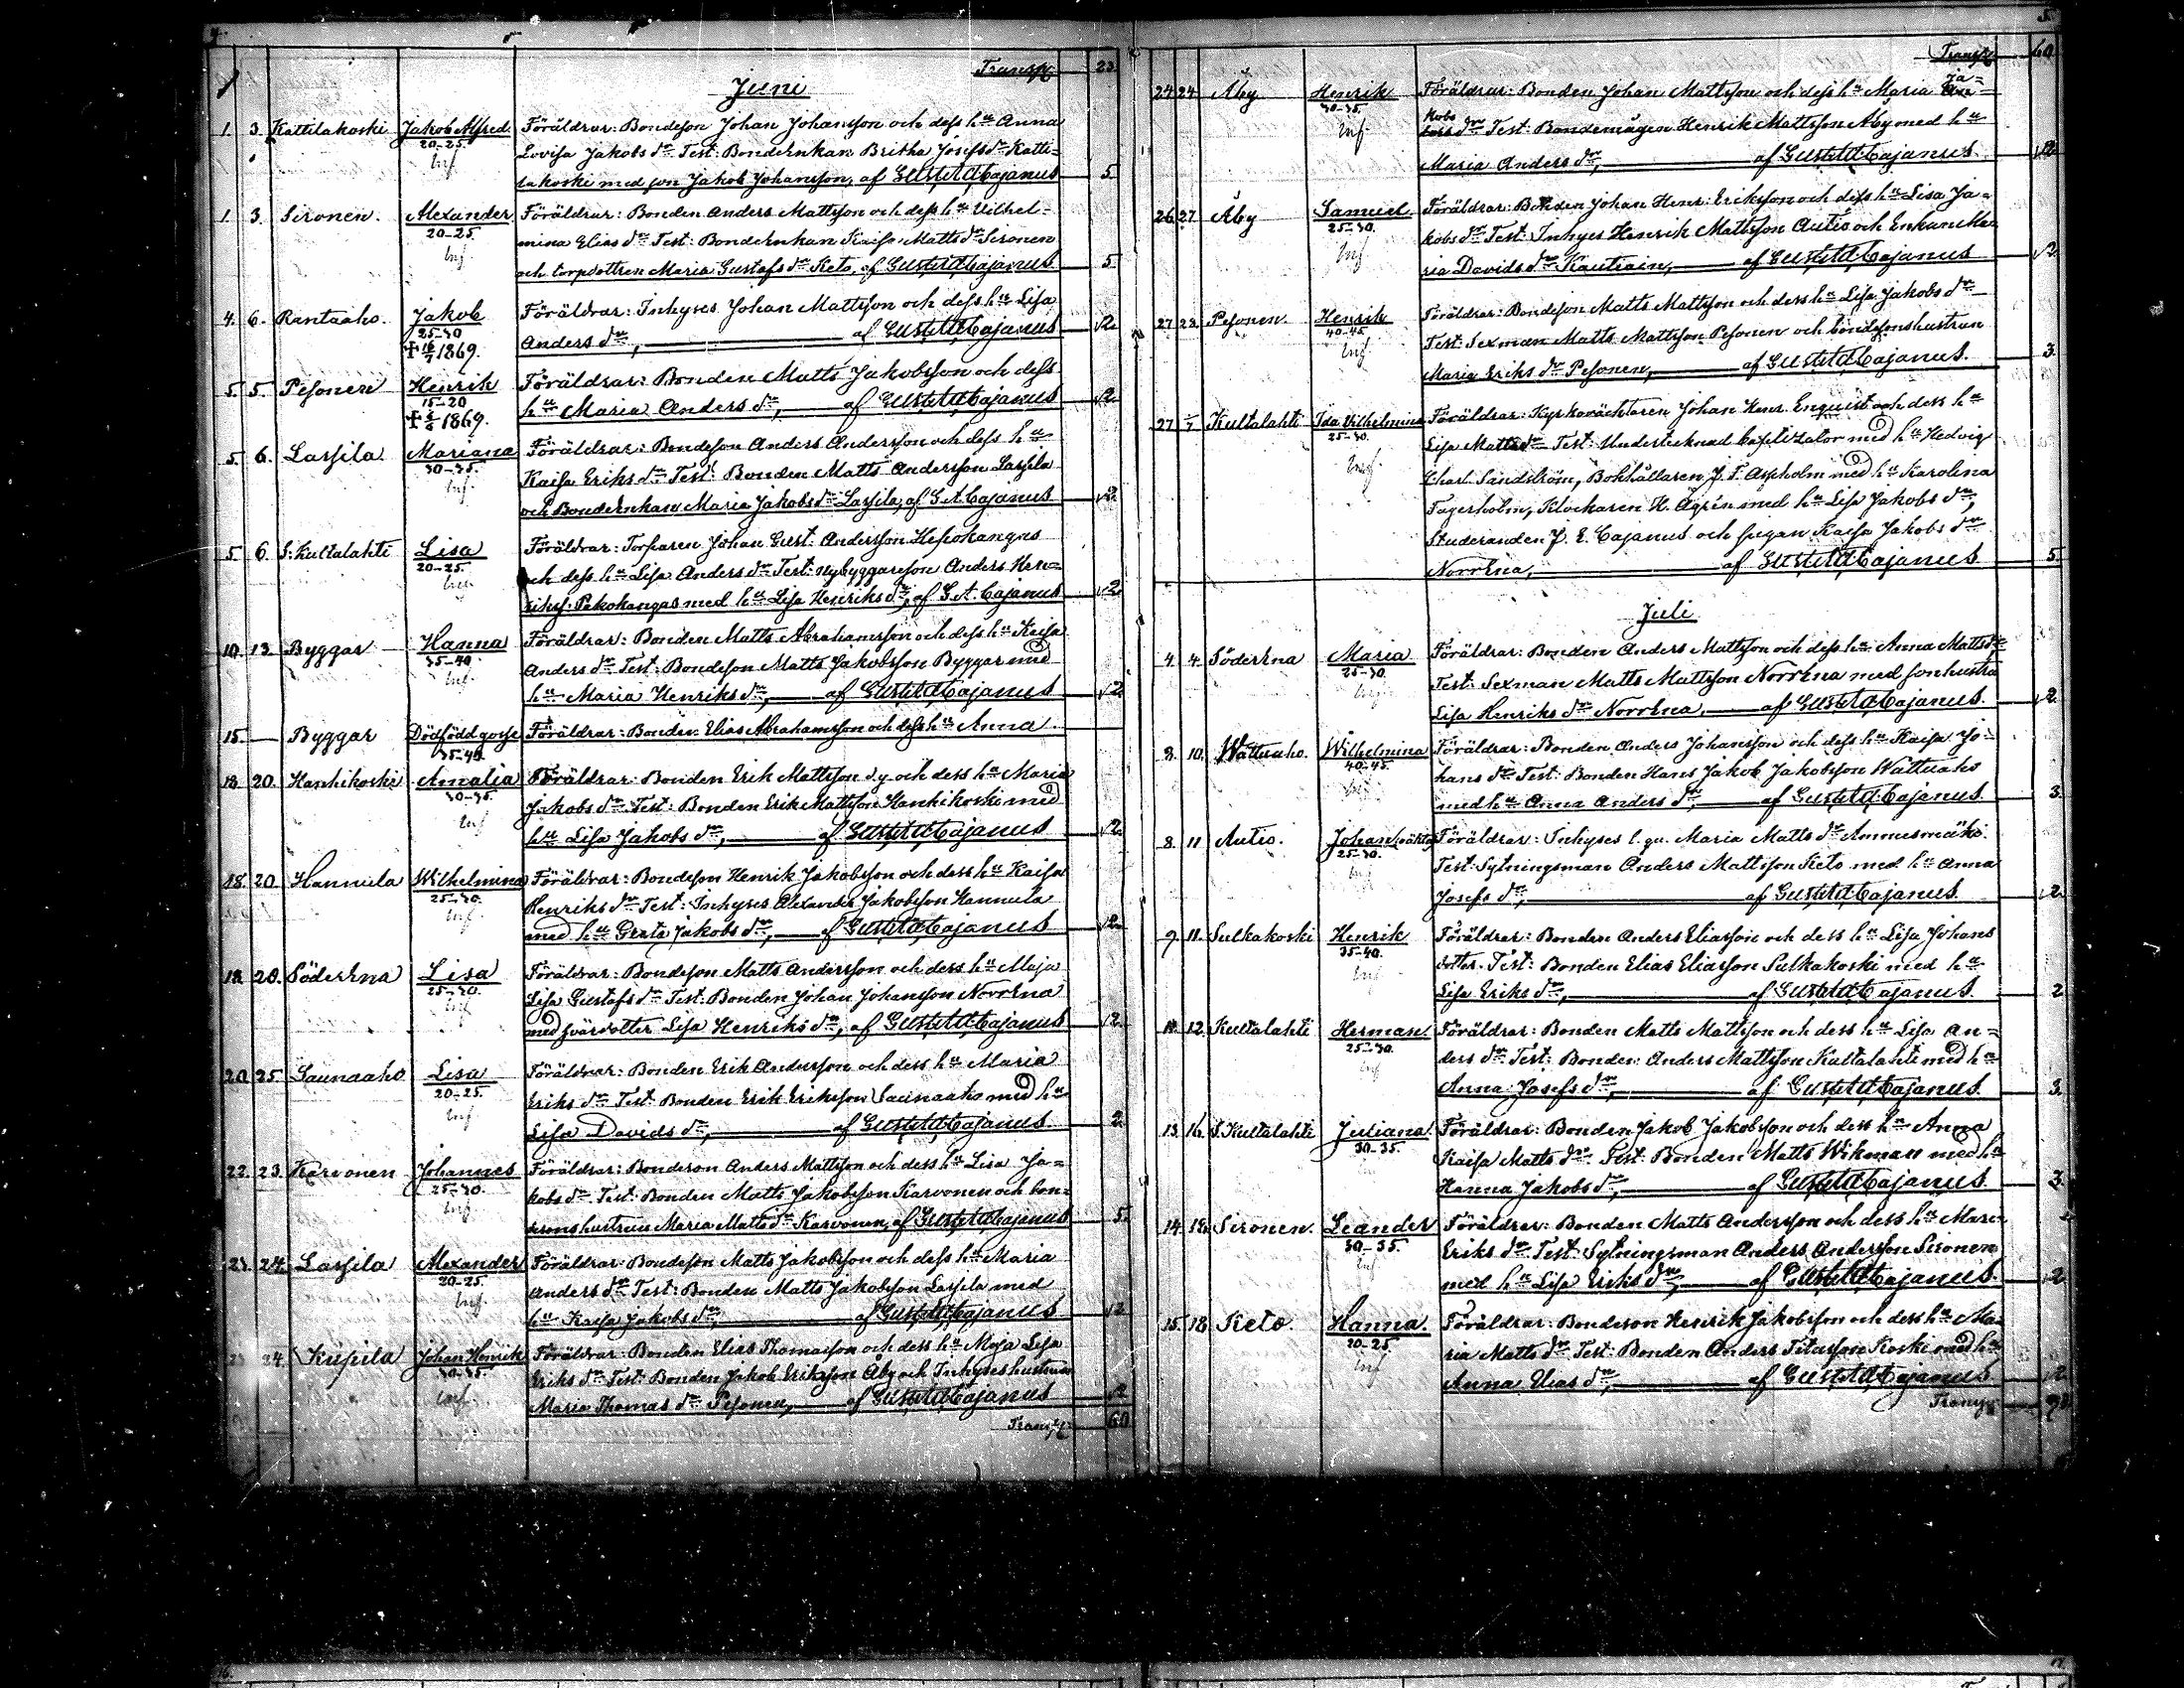 4.
Transp. 23.
Juni
1. 3. Kattilakoski Jakob Alfred Föräldrar: Bondeson Johan Johansson och dess hu Anna
20-25. Lovisa Jakobs dr Test: Bondeenkan Britha Josefs dr Katti-
Inf. lakoski med son Jakob Johansson, af Gust. Ad. Cajanus 5.
1. 3. Sironen. Alexander Föräldrar: Bonden Anders Mattsson och dess hu Vilhel-
20-25. mina Elias dr Test: Bondeenkan Kaisa Matts dr Sironen
Inf. och torpdottren Maria Gustafs dr Keto, af Gust. Ad. Cajanus 5
4. 6. Rantaaho. Jakob Föräldrar: Inhyses Johan Mattsson och dess hu Lisa
25-30 Anders dr, af Gust. Ad. Cajanus 2.
† 16/7 1869.
5. 5. Pesonen Henrik Föräldrar: Bonden Matts Jakobsson och dess
15-20 hu Maria Anders dr, af Gust. Ad. Cajanus 2
1869.
5. 6. Lassila Mariana Föräldrar: Bondeson Anders Andersson och dess hu
30-35. Kaisa Eriks dr Test: Bonden Matts Andersson Lassila
Inf. och Bondeenkan Maria Jakobs dr Lassila, af G. A. Cajanus 2.
5. 6. S: Kultalahti Lisa Föräldrar: Torparen Johan Gust: Andersson Hepokangas
20-25. och dess hu Lisa Anders dr Test: Nybyggareson Anders Hen-
Inf. rikss. Pakokangas med hu Lisa Henriks dr, af G. A. Cajanus 2
10. 13. Byggar Hanna Föräldrar: Bonden Matts Abrahamsson och dess hu Kaisa
35-40. Anders dr Test: Bondeson Matts Jakobsson Byggar med
Inf. hu Maria Henriks dr, af Gust. Ad. Cajanus 2
15. — Byggar Dödfödd gosse Föräldrar: Bonden Elias Abrahamsson och dess hu Anna
35-40.
18. 20. Hanhikoski Amalia Föräldrar: Bonden Erik Mattsson d.y. och dess hu Maria
30-35. Jakobs dr Test: Bonden Erik Mattsson Hanhikoski med
Inf. hu Lisa Jakobs dr, af Gust. Ad. Cajanus 2.
18. 20. Hannula Wilhelmina Föräldrar: Bondeson Henrik Jakobsson och dess hu Kaisa
25-30. Henriks dr Test: Inhyses Alexander Jakobsson Hannula
Inf. med hu Greta Jakobs dr, af Gust. Ad. Cajanus 2.
18. 20. Söderena Lisa Föräldrar: Bondeson Matts Andersson och dess hu Maja
25-30. Lisa Gustafs dr Test: Bonden Johan Johansson Norrena
Inf. med svärdotter Lisa Henriks dr, af Gust. Ad. Cajanus 2.
20. 25. Saunaaho Lisa Föräldrar: Bonden Erik Andersson och dess hu Maria
20-25. Eriks dr Test: Bonden Erik Eriksson Saunaaho med hu
Inf. Lisa Davids dr, af Gust. Ad. Cajanus 2
22. 23. Karvonen Johannes Föräldrar: Bondeson Anders Mattsson och dess hu Lisa Ja-
25-30. kobs dr Test: Bonden Matts Jakobsson Karvonen och bon-
Inf. desonshustrun Maria Matts dr Karvonen, af Gust. Ad. Cajanus 5.
23. 24. Lassila Alexander Föräldrar: Bondeson Matts Jakobsson och dess hu Maria
20-25. Anders dr Test: Bonden Matts Jakobsson Lassila med
Inf. hu Kaisa Jakobs dr, af Gust. Ad. Cajanus 2
23 24. Kujpila Johan Henrik Föräldrar: Bonden Elias Thomasson och dess hu Maja Lisa
30-35. Eriks dr Test: Bonden Jakob Eriksson Åby och Inhyseshustrun
Inf. Maria Thomas dr Pesonen, af Gust. Ad. Cajanus 2
Transp. 60
5.
Transp. 60.
24 24 Åby Henrik Föräldrar: Bonden Johan Mattsson och dess hu Maria Ja-
30-35. kobs dr Test: Bondemågen Henrik Mattsson Åby med hu
Inf. Maria Anders dr, af Gust. Ad. Cajanus 2
26 27 Åby Samuel Föräldrar: Bonden Johan Henr: Eriksson och dess hu Lisa Ja-
25-30. kobs dr Test: Inhyses Henrik Mattsson Autio och Enkan Ma-
Inf. ria Davids dr Kautiain, af Gust. Ad. Cajanus 2.
27 28. Pesonen. Henrik Föräldrar: Bondeson Matts Mattsson och dess hu Lisa Jakobs dr
40-45. Test: Sexman Matts Mattsson Pesonen och bondesonshustrun
Inf. Maria Eriks dr Pesonen, af Gust. Ad. Cajanus. 3.
27 Kultalahti Ida Vilhelmina Föräldrar: Kyrkoväktaren Johan Henr. Enquist och dess hu
25-30. Lisa Matts dr Test: Undertecknad med hu Hedvig
Inf. Charl. Sandström, Bokhållaren J. F. Aspholm med hu Karolina
Fagerholm, Klockaren H. Agrén med hu Lisa Jakobs dr,
Studeranden J. E. Cajanus och pigan Kaisa Jakobs dr
Norrena, af Gust. Ad. Cajanus 5.
Juli
4. 4. Söderena Maria Föräldrar: Bonden Anders Mattsson och dess hu Anna Matts dr
25-30. Test: Sexman Matts Mattsson Norrena med sonhustru
Inf. Lisa Henriks dr Norrena, af Gust. Ad. Cajanus. 2.
8. 10. Wattuaho. Wilhelmina Föräldrar: Bonden Anders Johansson och dess hu Kaisa Jo-
40-45. hans dr Test: Bonden Hans Jakob Jakobsson Wattuaho
Inf. med hu Anna Anders dr, af Gust. Ad. Cajanus 3.
8. 11 Autio. Johan (oäkta) Föräldrar: Inhyses l. qu. Maria Matts dr Ammesmäki
25-30. Test: Sytningsman Anders Mattsson Keto med hu Anna
Inf Josefs dr, af Gust. Ad. Cajanus. 2.
9. 11. Sulkakoski Henrik Föräldrar: Bonden Anders Eliasson och dess hu Lisa Johans
35-40. dotter. Test: Bonden Elias Eliasson Sulkakoski med hu
Inf Lisa Eriks dr, af Gust. Ad. Cajanus 2
11. 12. Kultalahti Herman Föräldrar: Bonden Matts Mattsson och dess hu Lisa An-
25-30. ders dr Test: Bonden Anders Mattsson Kultalahti med hu
Inf Anna Josefs dr, af Gust. Ad. Cajanus. 3.
13. 16. S. Kultalahti Juliana Föräldrar: Bonden Jakob Jakobsson och dess hu Anna
30-35. Kaisa Matts dr Test: Bonden Matts Wikman med hu
Hanna Jakobs dr, af Gust. Ad. Cajanus. 3.
14. 18. Sironen. Leander Föräldrar: Bonden Matts Andersson och dess hu Mari-
30-35. Eriks dr Test: Sytningsman Anders Andersson Sironen
Inf med hu Lisa Eriks dr, af Gust. Ad. Cajanus. 2
15. 18. Keto. Hanna. Föräldrar: Bondeson Henrik Jakobsson och dess hu Ma-
20-25. ria Matts dr Test: Bonden Anders Titusson Koski med hu
Inf Anna Elias dr, af Gust. Ad. Cajanus. 2
Transp.